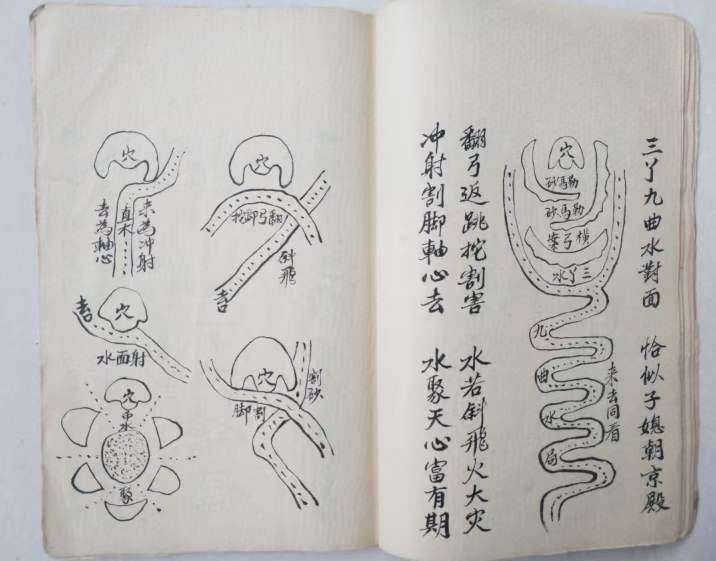 三丫九曲水對面 恰似子媳朝京殿
穴
勒馬砂
勒馬砂
橫弓案
三丫水
九曲水局
来去同看
翻弓返跳挖割害 水若斜飛火大灾
冲射割脚軸心去 水聚天心富有期
穴
翻弓脚挖
斜飛
穴
割砂
割脚
穴
来為冲射
直木
去為軸心
穴
射面水
穴
水
聚